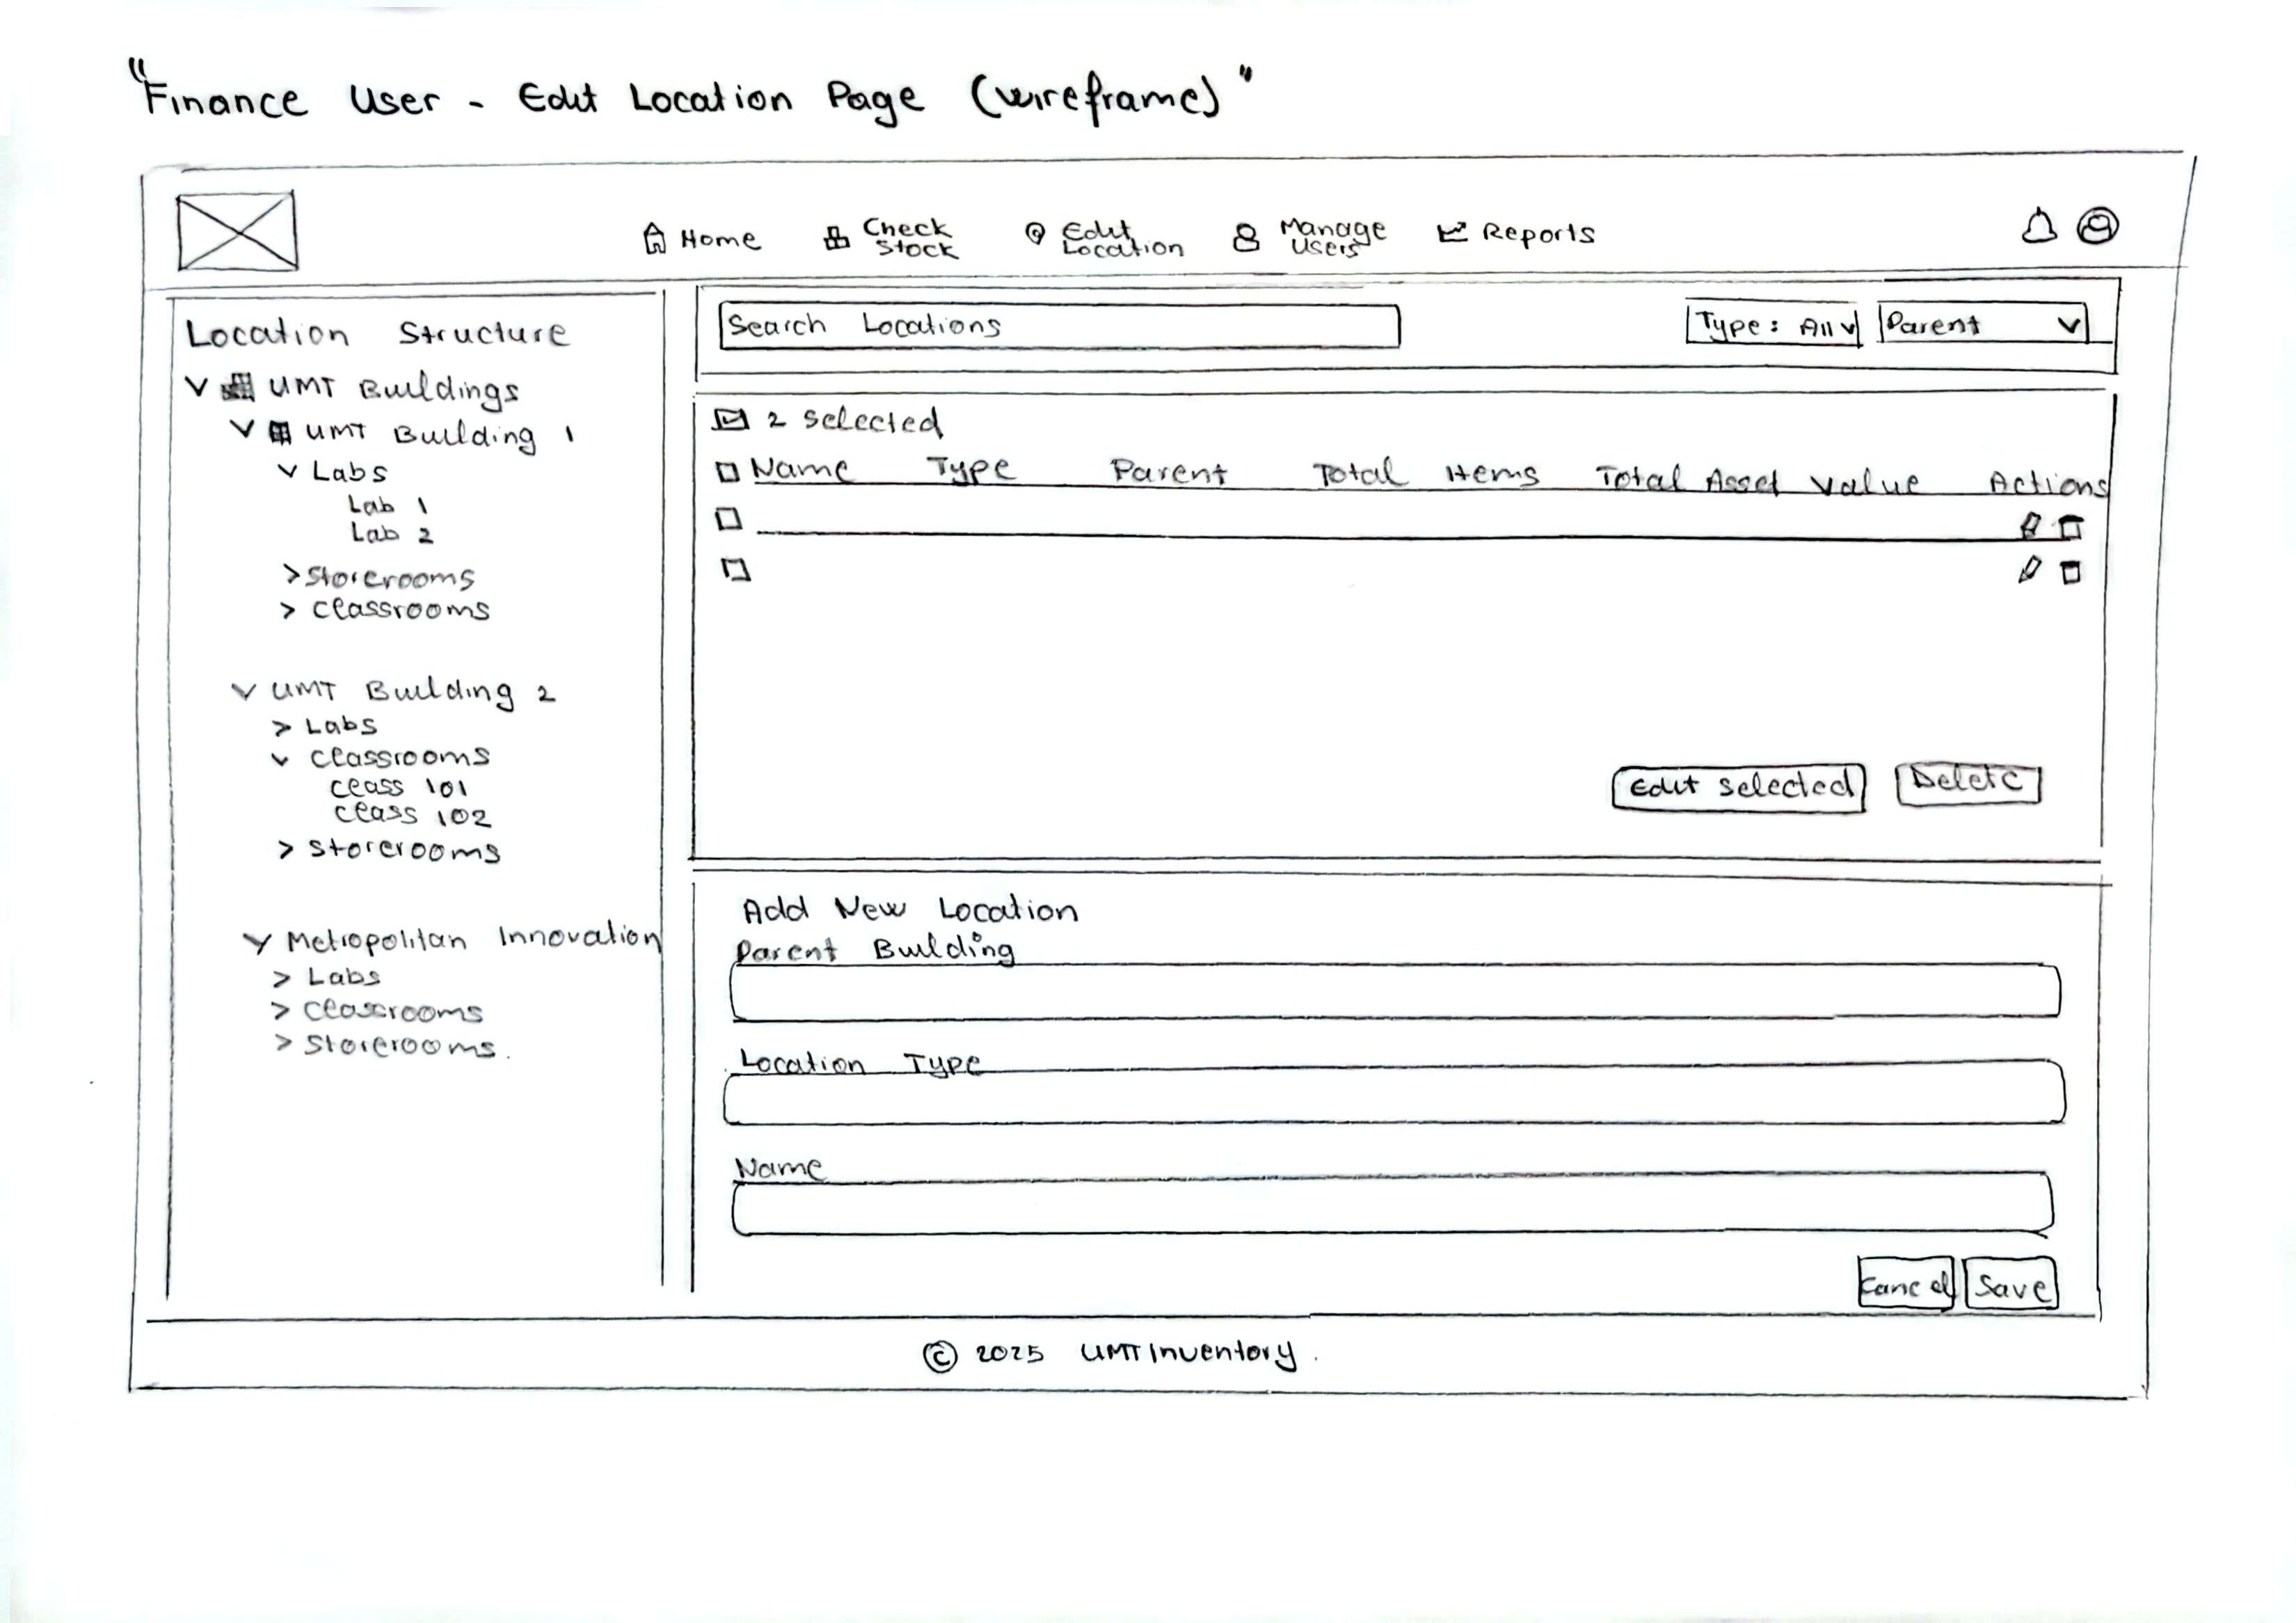 "Finance User - Edit Location Page (wireframe)"
Home
Check Stock
Edit Location
Manage Users
Reports
Location Structure
UMT Buildings
UMT Building 1
Labs
Lab 1
Lab 2
Storerooms
Classrooms
UMT Building 2
Labs
Classrooms
Class 101
Class 102
Storerooms
Metropolitan Innovation
Labs
Classrooms
Storerooms.
Search Locations
Type: All
Parent
2 Selected
Name Type Parent Total Items Total Asset Value Actions
Edit Selected
Delete
Add New Location
Parent Building
Location Type
Name
Cancel
Save
© 2025 UMT Inventory.